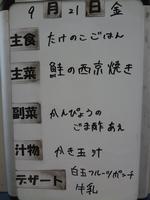 9月21日金
主食 たけのこごはん
主菜 鮭の西京焼き
副菜 かんぴょうの
ごま酢あえ
汁物 かき玉汁
デザート 白玉フルーツポンチ
牛乳